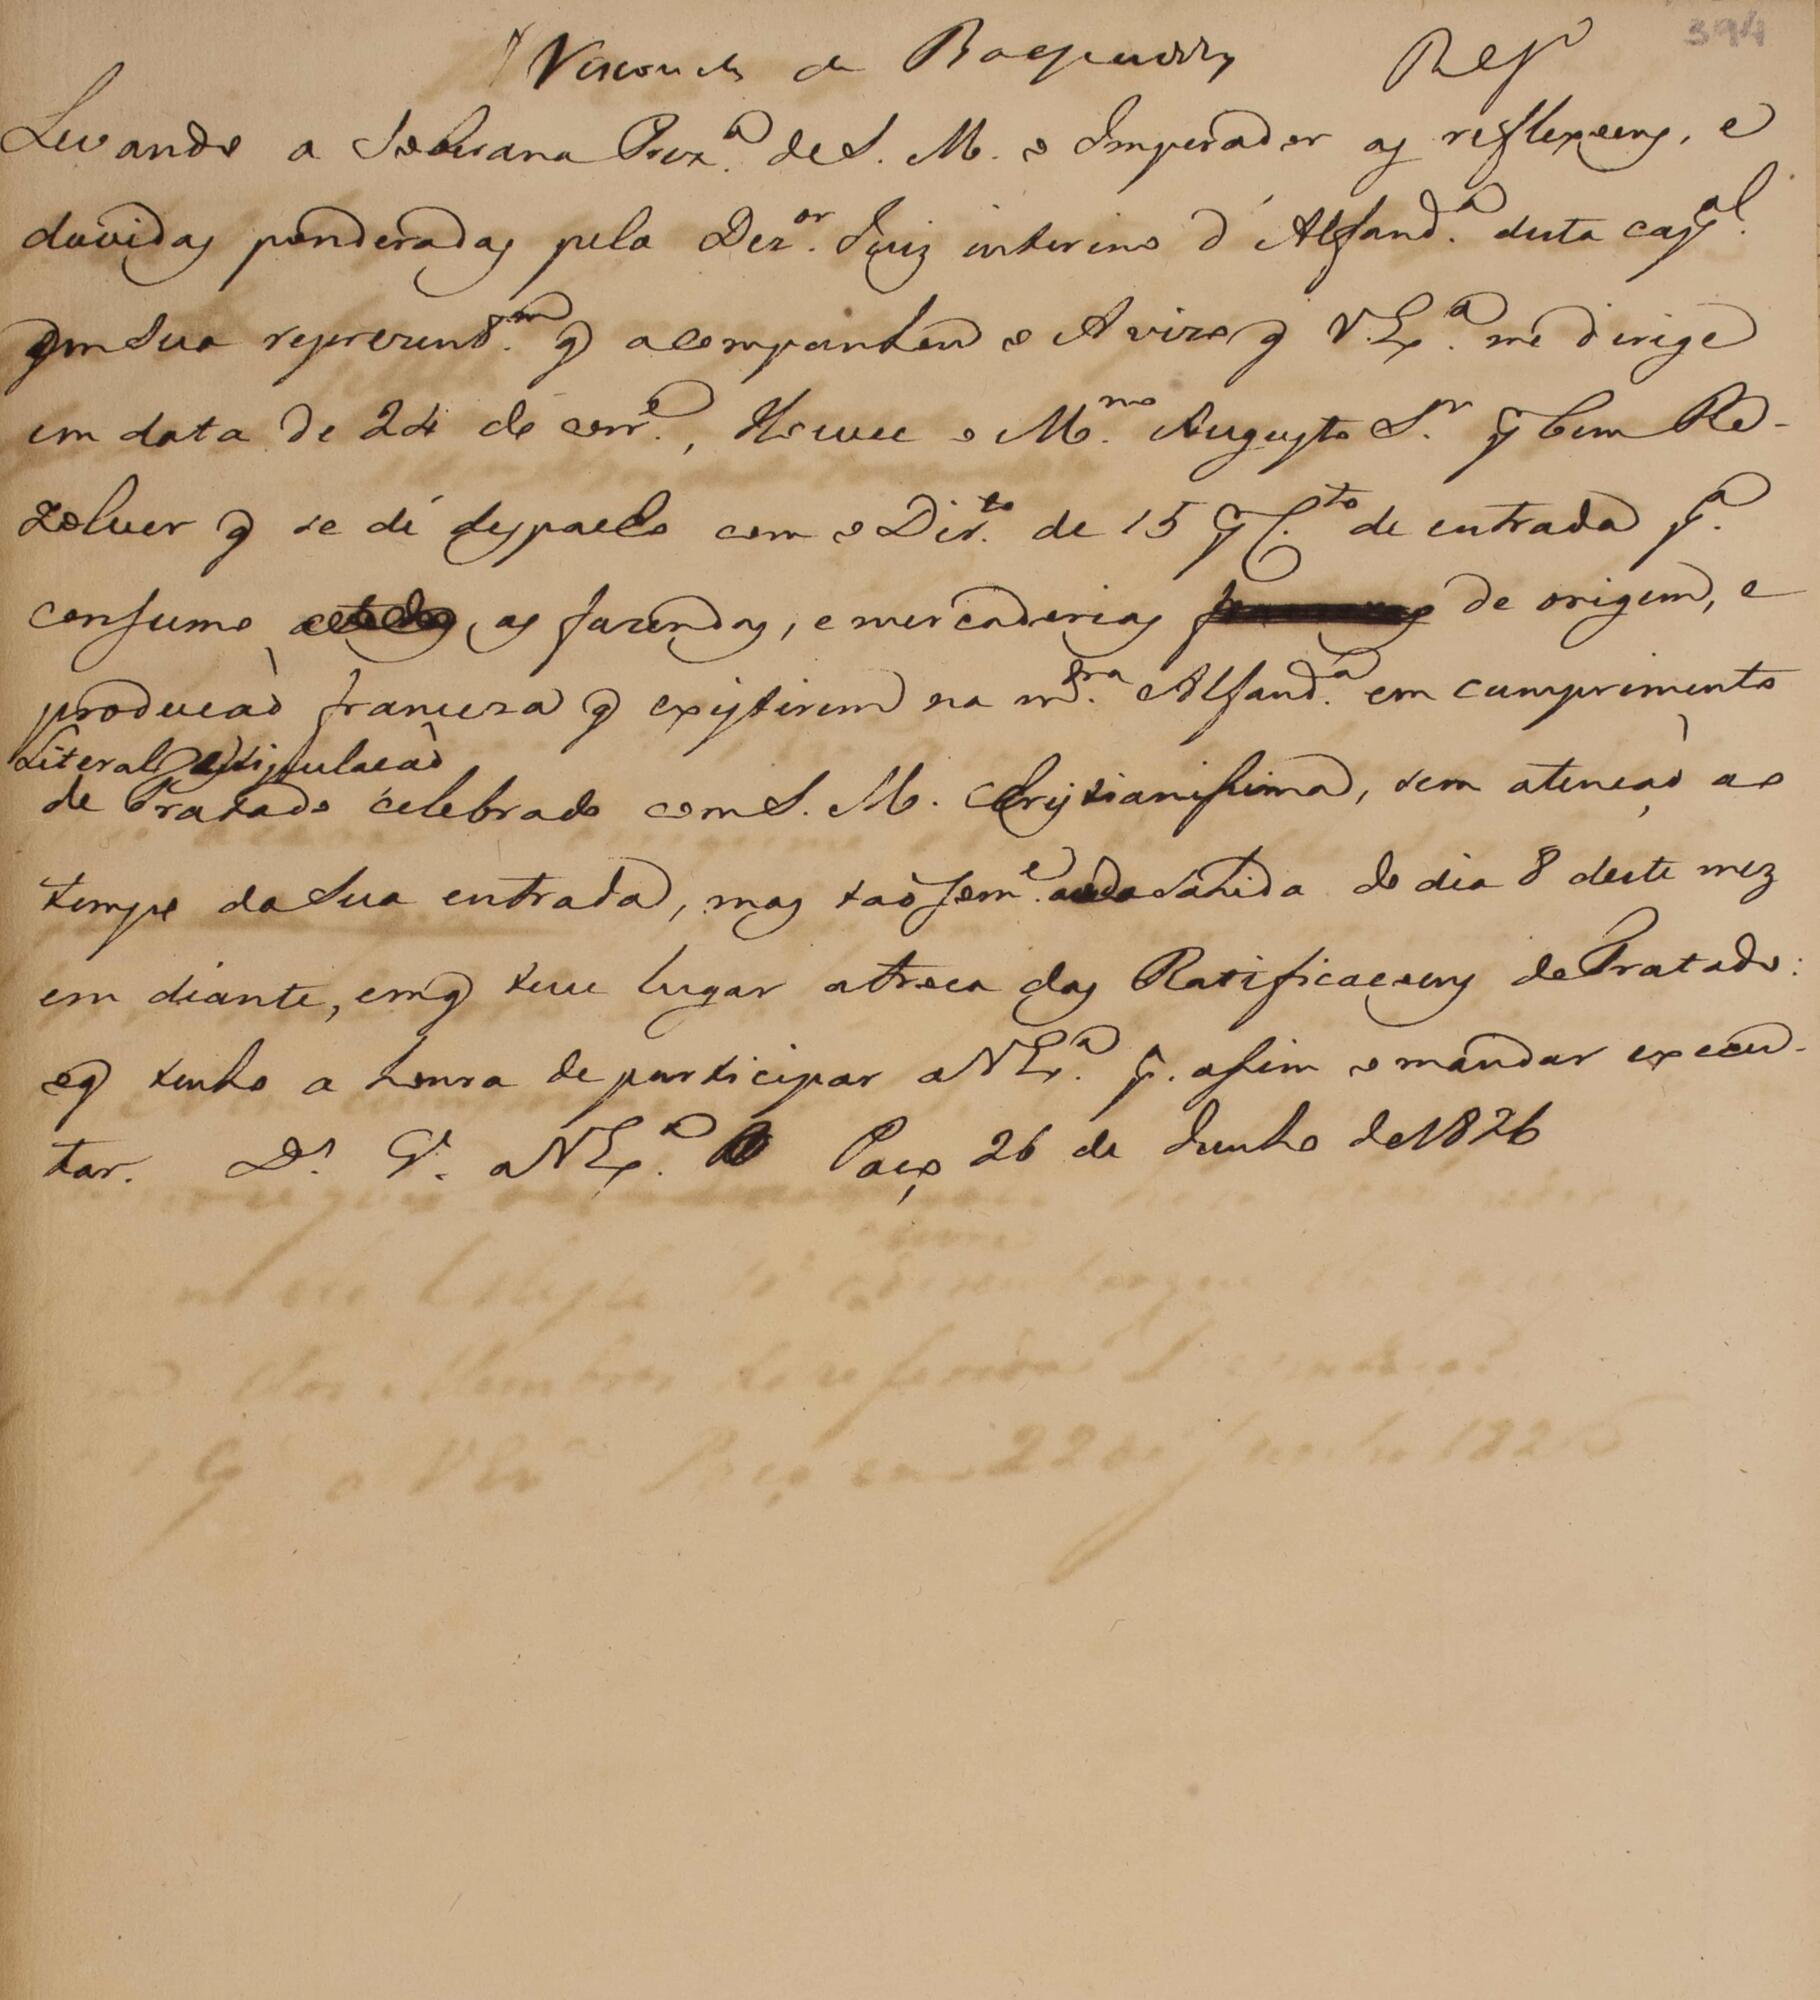 394
Visconde de Baependy Regº
Levando a Soberana Prezª de S. M. o Imperador as reflexoens, e
duvidas ponderadas pelo Dezor. Juiz interino d'Alfandª desta capal.
em sua reprezend.am q acompanhou o Avizo q V. Exª me dirige
em data de 24 do corre., Houve o Mmo. Augusto Sr. p bem Re-
zolver q se dê despacho com o Dirto. de 15 p Cto. de entrada pª
consumo as fazendas, e mercadorias de origem, e
producaõ franceza q existirem na mma. Alfandª em cumprimento
Literal da estipulacaõ
do Tratado celebrado com S. M. Christianissima, sem atençaõ ao
tempo da sua entrada, mas taõ some. a da sahida do dia 8 deste mez
em diante, em q teve lugar a troca das Ratificaçoens do Tratado:
o q tenho a honra de participar a V Exª p. assim o mandar execu-
tar. Ds. Ge. a V Exª Paço 26 de Junho de 1826